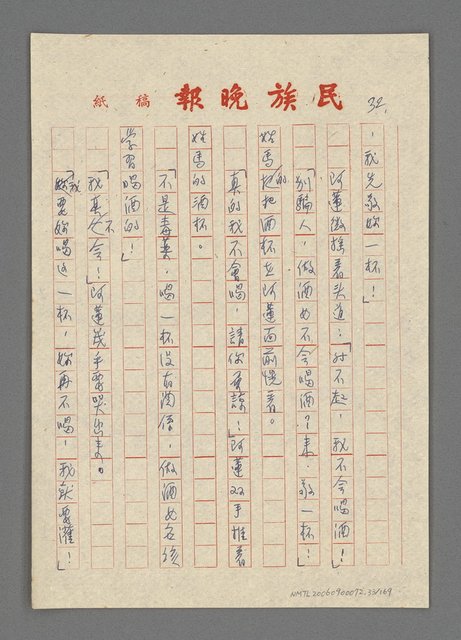 民族晚報 稿紙
32.
，我先敬妳一杯！」
阿蓮微搖着头道：「对不起，我不会喝酒！」
「別騙人，做酒女不会喝酒？来，敬一杯！」
姓馬的把酒杯在阿蓮面前愰着。
「真的我不會喝，請你原諒！」阿蓮双手推着
姓馬的酒杯。
「不是毒藥，喝一杯没有関係，做酒女必須
学習喝酒的！」
「我真的不会！」阿蓮幾乎要哭出来。
「我要妳喝这一杯，妳再不喝，我就要灌！」
NMTL20060900072.33/169